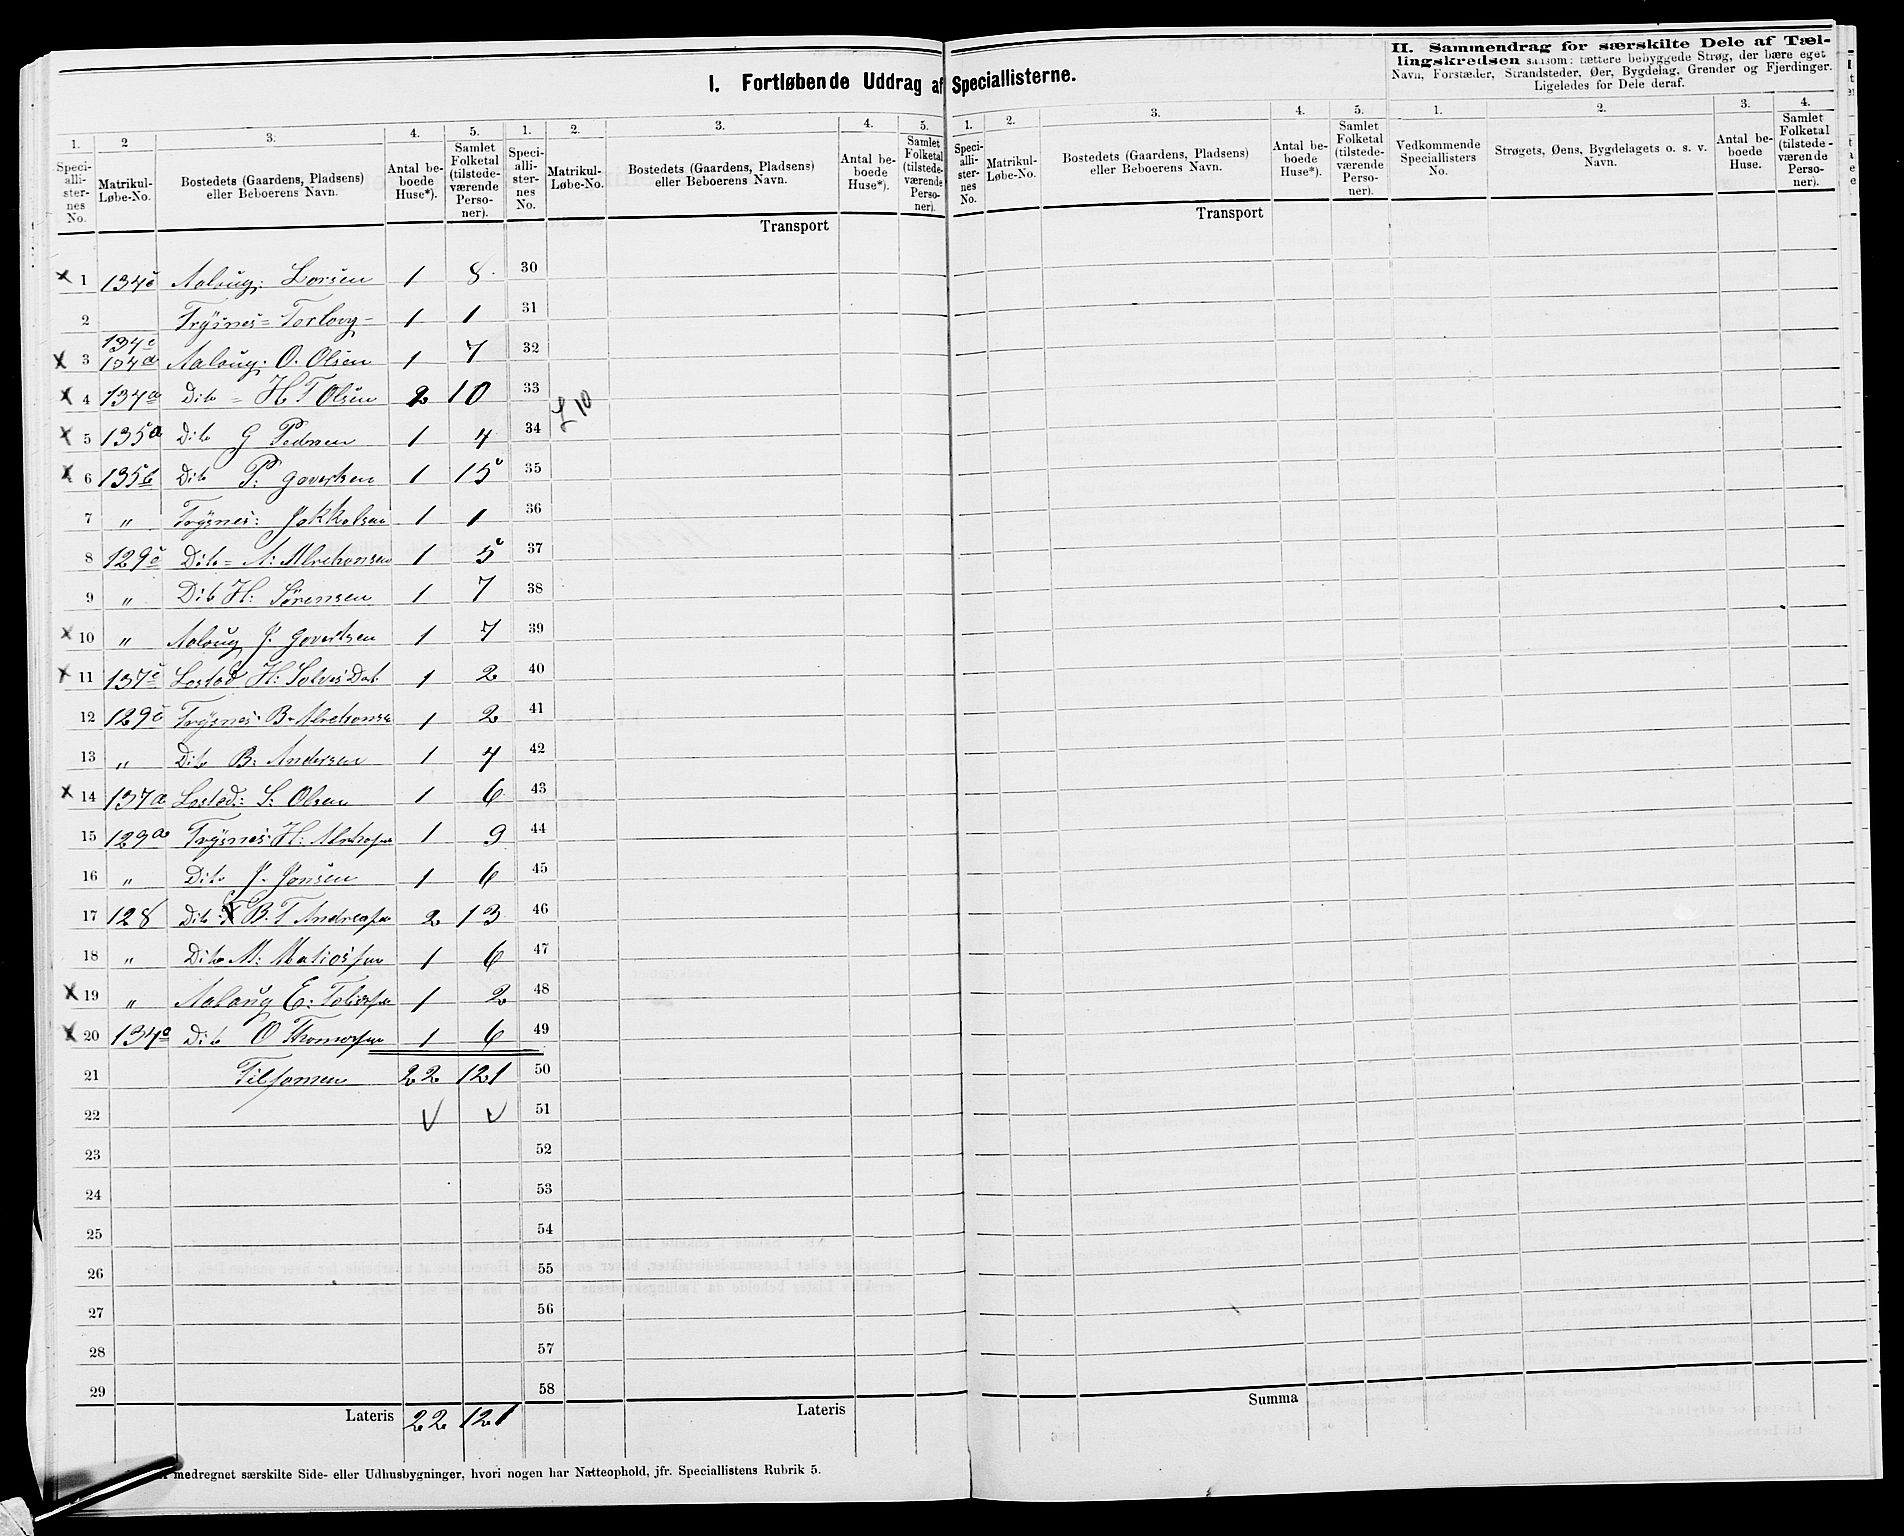 I. Fortløbende Uddrag af Speciallisterne.
II. Sammendrag for særskilte Dele af Tæl-
lingskredsen saasom: tættere bebyggede Strøg, der bære eget
Navn, Forstæder, Strandsteder, Øer, Bygdelag, Grender og Fjerdinger.
Ligeledes for Dele deraf.
1. 2 3. 4. 5. 1. 2. 3. 4. 5. 1. 2. 3. 4. 5. 1. 2. 3. 4.
Speci-
alli-
ster-
nes
No.
Matrikul-
Løbe-No.
Bostedets (Gaardens, Pladsens)
eller Beboerens Navn.
Antal be-
boede
Huse*).
Samlet
Folketal
(tilstede-
værende
Perso-
ner).
Speci-
alli-
ster-
nes
No.
Matrikul-
Løbe-No.
Bostedets (Gaardens, Pladsens)
eller Beboerens Navn.
Antal be-
boede
Huse*).
Samlet
Folketal
(tilstede-
værende
Perso-
ner).
Speci-
alli-
ster-
nes
No.
Matrikul-
Løbe-No.
Bostedets (Gaardens, Pladsens)
eller Beboerens Navn.
Antal be-
boede
Huse*).
Samlet
Folketal
(tilstede-
værende
Perso-
ner).
Vedkommende
Speciallisters
No.
Strøgets, Øens, Bygdelagets o. s. v.
Navn.
Antal be-
boede
Huse.
Samlet
Folketal
(tilstede-
værende
Perso-
ner).
Transport
Transport
x 1 134c Aalaug: Larsen 1 8 30
2 Trysnes= Torlaug 1 1 31
134c
x 3 134d Aalaug: O. Olsen 1 7 32
x 4 134a Dito = H T Olsen 2 10 33
10
x 5 135a Dito G Pedersen 1 4 34
x 6 135b Dito P: Govertsen 1 15 35
7 " Trysnes: Jakkelsen 1 1 36
8 129c Dito= A: 1 5 37
9 " Dito H: Sørensen 1 7 38
x 10 " Aalaug J. Govertsen 1 7 39
x 11 137c Lastad H: 1 2 40
12 129c Trysnes B. 1 2 41
13 " Dito B: Andersen 1 4 42
x 14 137a Lastad: S: Olsen 1 6 43
15 129a Trysnes: H: 1 9 44
16 " Dito J. Jonsen 1 6 45
17 128 Dito: B. T Andreasen 2 13 46
18 " Dito M: Matiossen 1 6 47
x 19 " Aalaug E: Tobiassen 1 2 48
x 20 134a Dito O Thomassen 1 6 49
21 Tilsamen 22 121 50
22 51
23 52
24 53
25 54
26 55
27 56
28 57
29 58
Lateris 22 121 Lateris Summa
medregnet særskilte Side- eller Udhusbygninger, hvori nogen har Natteophold, jfr. Speciallistens Rubrik 5.